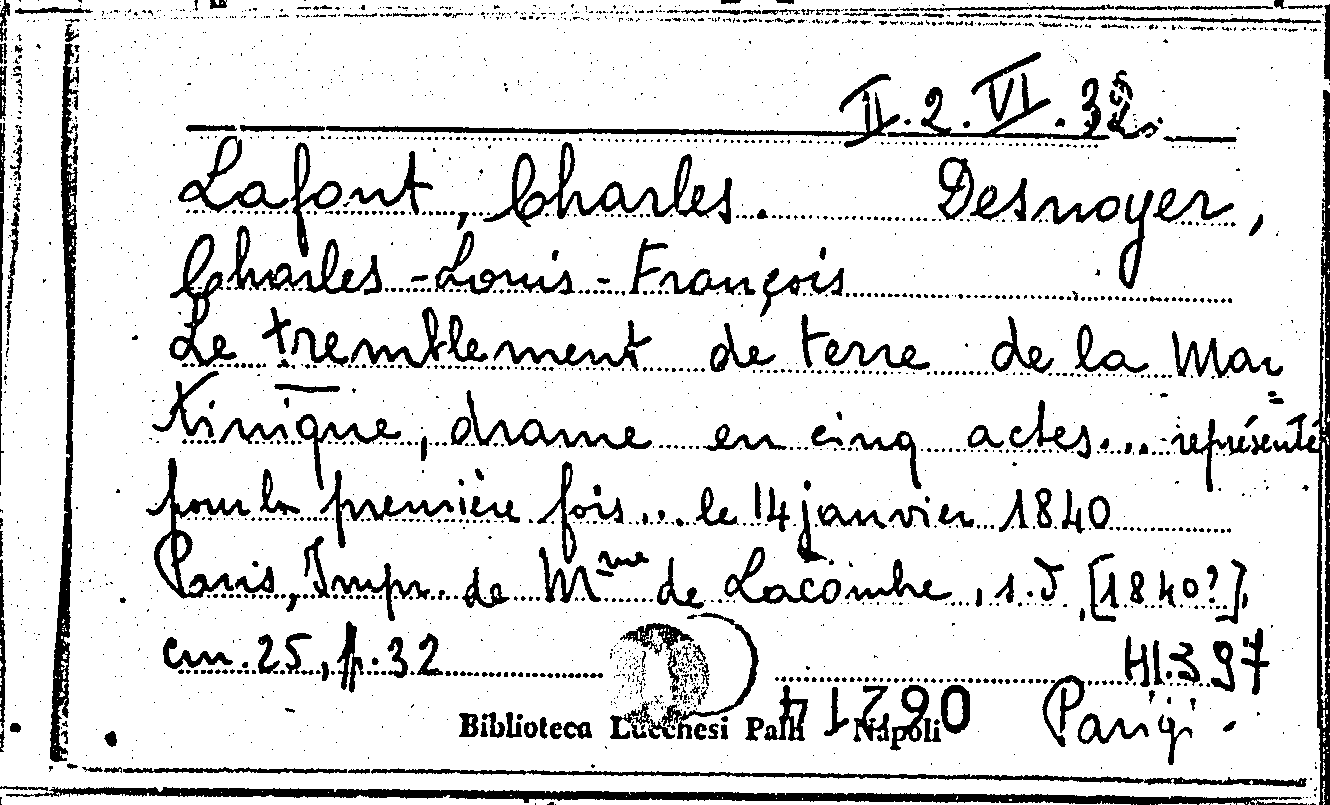 II.2.VI.32.
Lafont, Charles. Desnoyer,
Charles-Louis-François
Le tremblement de terre de la Mar=
tinique, drame en cinq actes... représenté
pour la première fois... le 14 janvier 1840
Paris, Impr. de Mme de Lacombe, s.d. [1840?],
cm.25, p.32
Biblioteca Lucchesi Palli Napoli
Parigi.